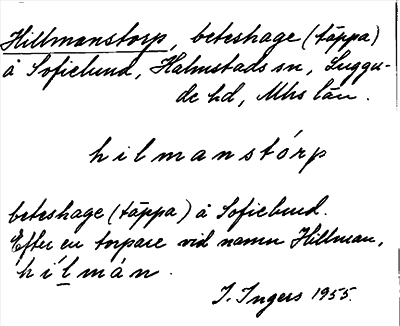 Hillmanstorp, beteshage (täppa)
å Sofielund, Halmstads sn, Luggu-
de hd, Mhs län.
hilmanstórp
beteshage (täppa) å Sofielund.
Efter en torpare vid namn Hillman,
híl̲mán.
I. Ingers 1955.